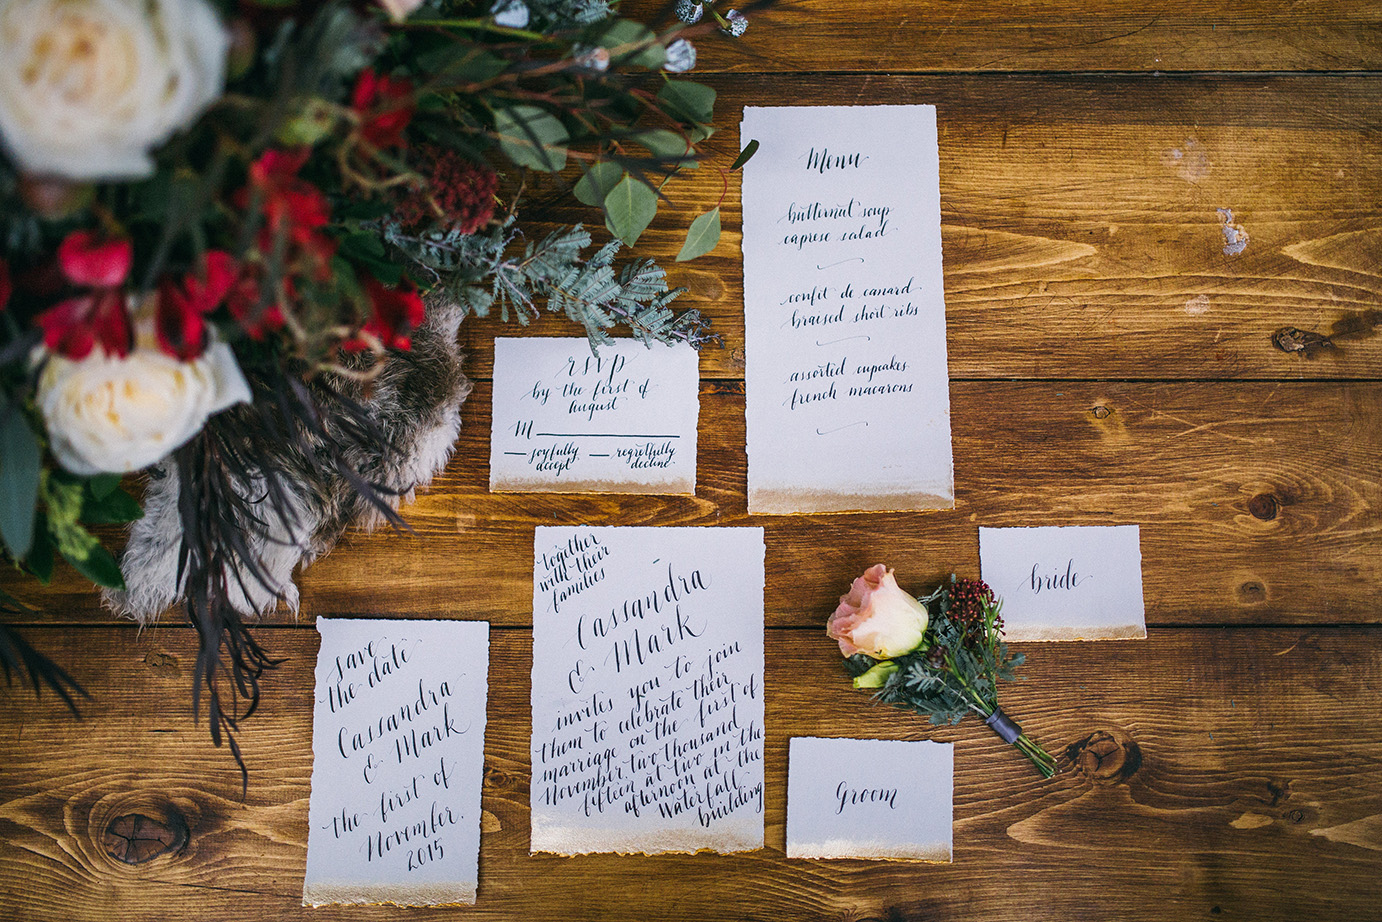 Menu
butternut soup
caprese salad
confit de canard
braised short ribs
assorted cupcakes
french macarons
rsvp
by the first of
August
M
joyfully
accept
regretfully
decline
together
with their
families
Cassandra
& Mark
invites you to join
them to celebrate their
marriage on the first of
November two thousand
fifteen at two in the
afternoon at the
Waterfall
building
bride
save
the date
Cassandra
& Mark
the first of
November.
2015
Groom